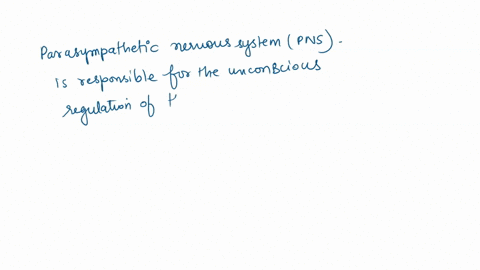 Parasympathetic nervous system (PNS).
is responsible for the unconscious
regulation of